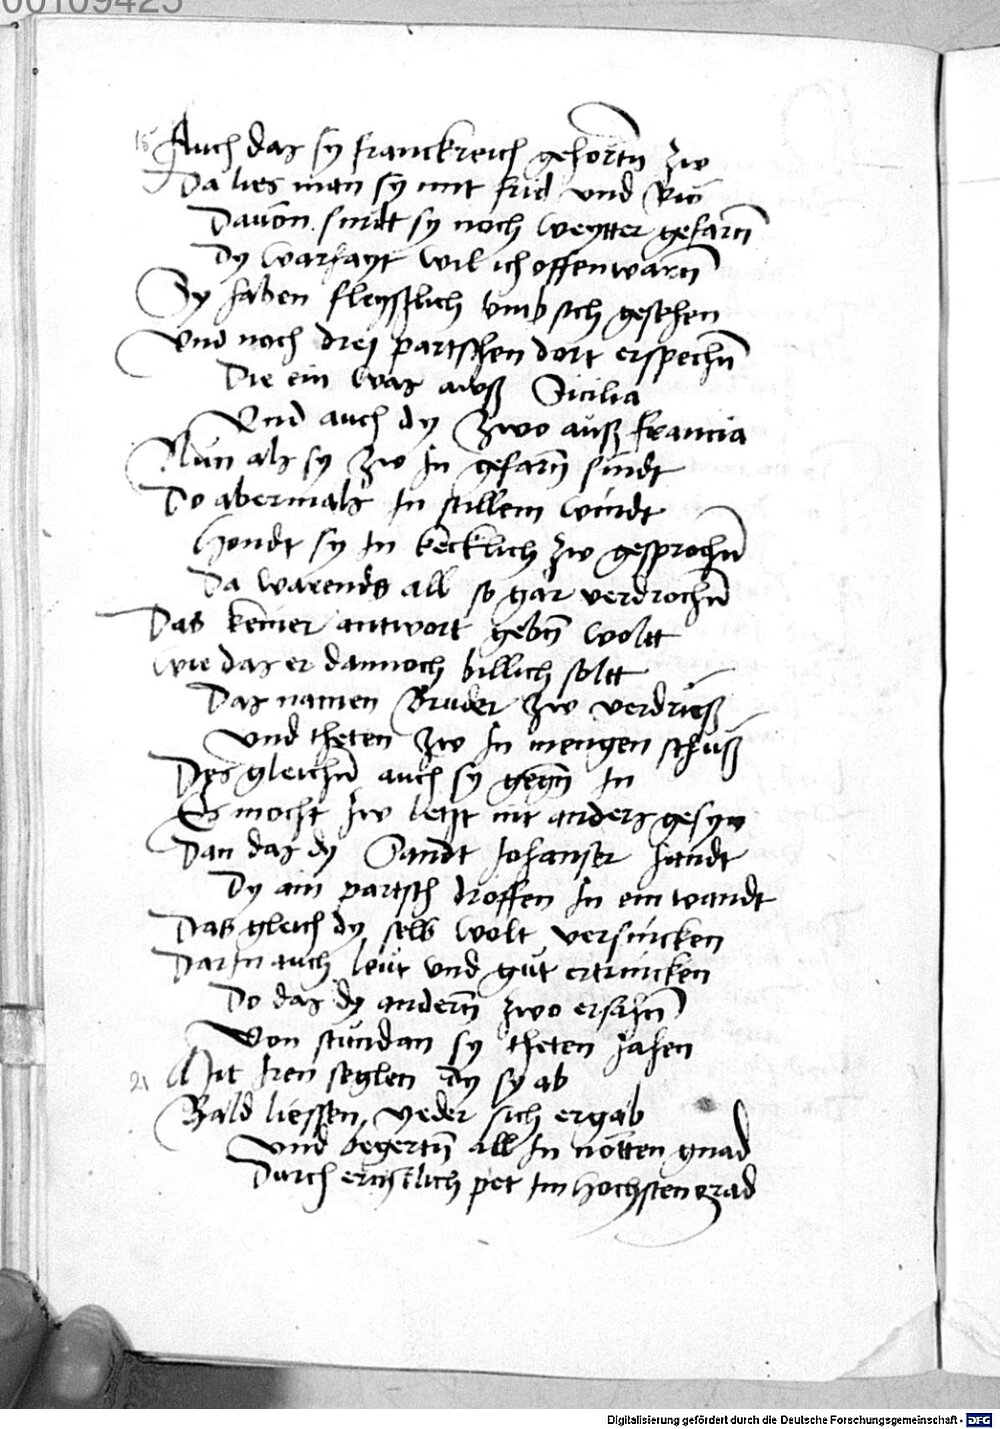 00109425
15 Auch das sy franckreich gehortn zw
Da lies man sy mit frid und Rw
Davon sindt sy noch weytter gefarn
Dy warhayt wil ich offenwarn
Sy haben fleysslich umb sich gesehen
Und noch drej partschen dort erspechn
Die ein was awß Sicilia
Und auch dy zwo auß francia
Nun als sy zw In gefarn sindt
Do abermals In stillem windt
Hondt sy In kecklich zw gesprochn
Da warends all so gar verdrochn
Das keiner antwort gebn woltt
Wie das er dannoch billich soltt
Das namen Bruder zw verdrieß
Und theten zw In mengen schuß
Des gleichn auch sy gegn In
Es mocht zw letzt nit anders gesyn
Dan das dy Sandt Johanser handt
Dy ain partsch troffen In ein wandt
Das gleich dy selb wolt versincken
Darin auch leut und gut ertrincken
Do das dy andern zwo ersahn
Von stundan sy theten jahen
21 Mit Iren seglen dy sy ab
Bald liessen, yeder sich ergab
Und begertn all In nötten gnad
Durch ernstlich pet Im hochsten grad
Digitalisierung gefördert durch die Deutsche Forschungsgemeinschaft - DFG